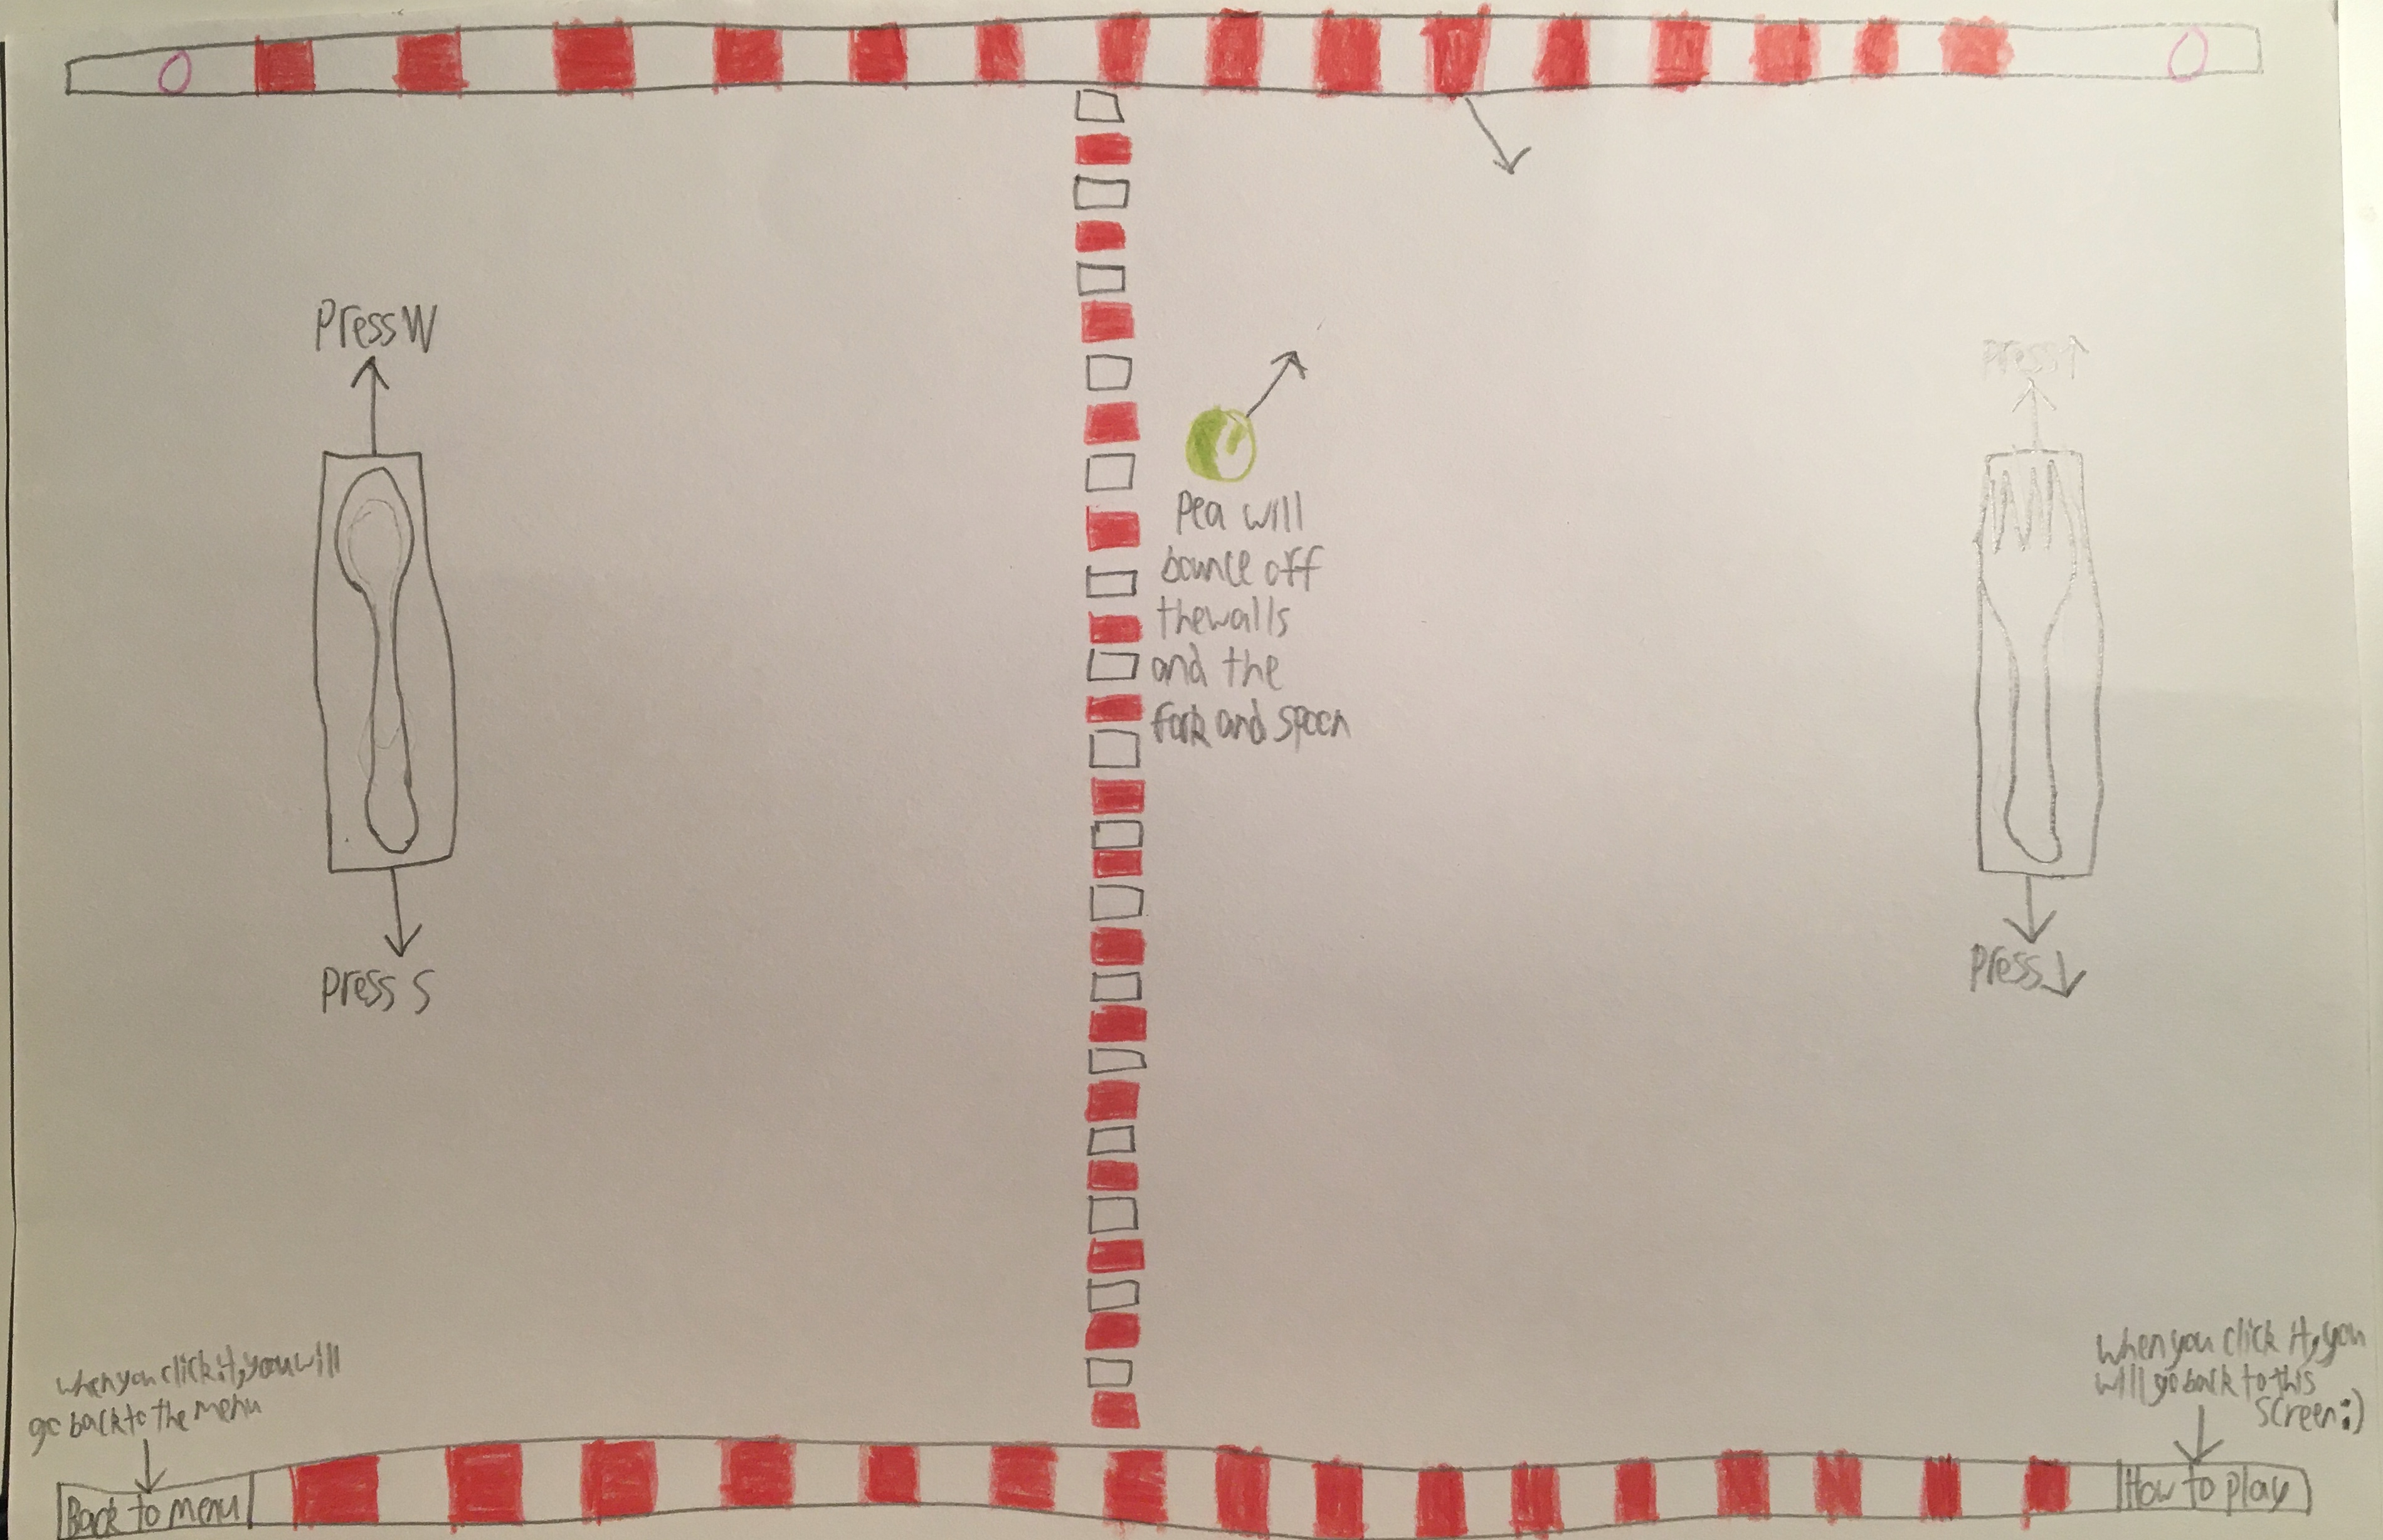 0
0
Press W
Press ↑
Pea will
bounce off
the walls
and the
fork and spoon
Press S
Press ↓
when you click it, you will
go back to the menu
when you click it, you
will go back to this
screen :)
Back to menu
How to play